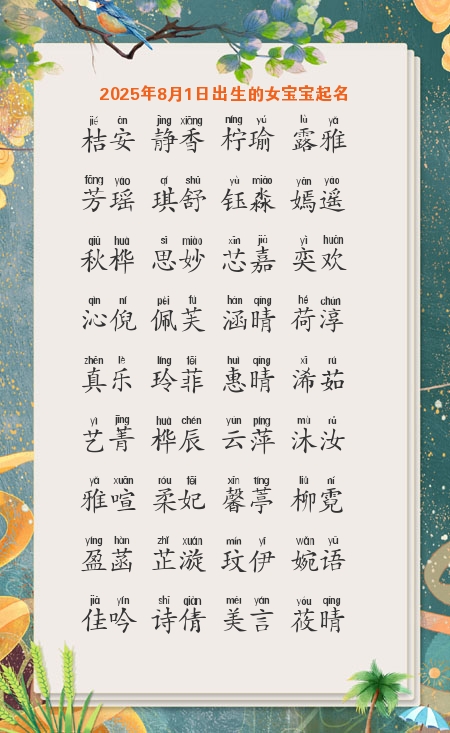 2025年8月1日出生的女宝宝起名
jié ān jìng xiāng níng yú lù yǎ
桔安 静香 柠瑜 露雅
fāng yáo qí shū yù miǎo yān yáo
芳瑶 琪舒 钰淼 嫣遥
qiū huà sī miào xīn jiā yì huān
秋桦 思妙 芯嘉 奕欢
qìn ní pèi fú hán qíng hé chún
沁倪 佩芙 涵晴 荷淳
zhēn lè líng fēi huì qíng xī rú
真乐 玲菲 惠晴 浠茹
yì jīng huà chén yún píng mù rǔ
艺菁 桦辰 云萍 沐汝
yǎ xuān róu fēi xīn tíng liǔ ní
雅喧 柔妃 馨葶 柳霓
yíng hàn zhǐ xuán mín yī wǎn yǔ
盈菡 芷漩 玟伊 婉语
jiā yín shī qiàn měi yán yóu qíng
佳吟 诗倩 美言 莜晴